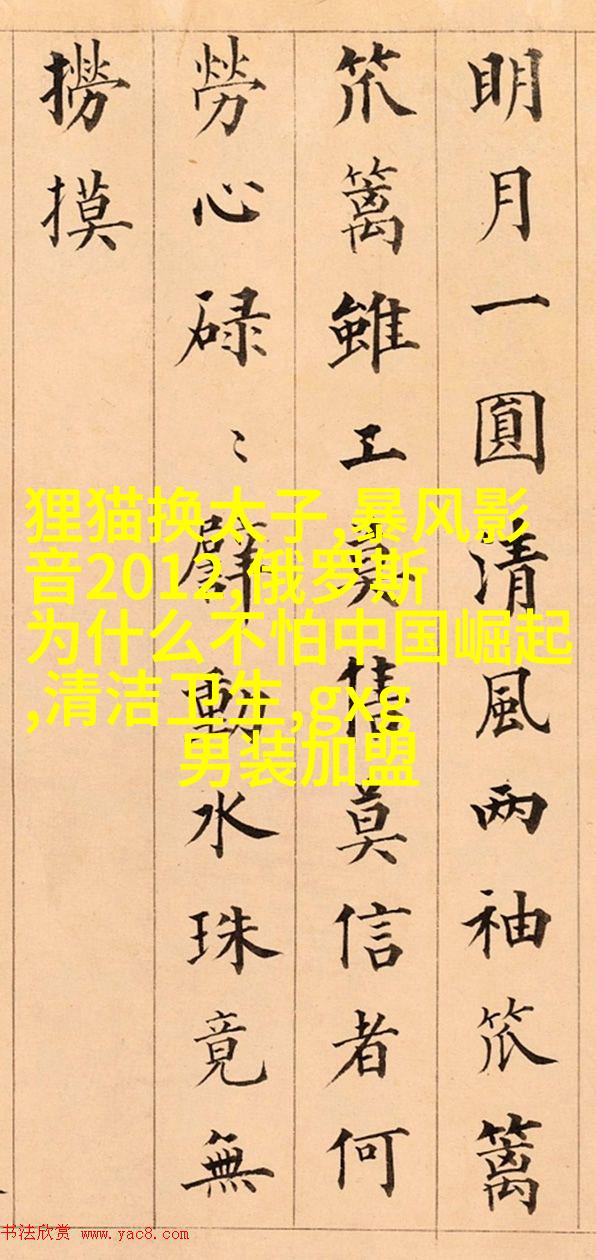 明月一圓清風两袖笊篱
笊篱雖工莫信者何
勞心碌〻動水珠竟無
撈摸
狸猫换太子,暴风影
音2012,俄罗斯
为什么不怕中国崛起
,清洁卫生,gxg
男装加盟
书法欣赏 www.yac8.com